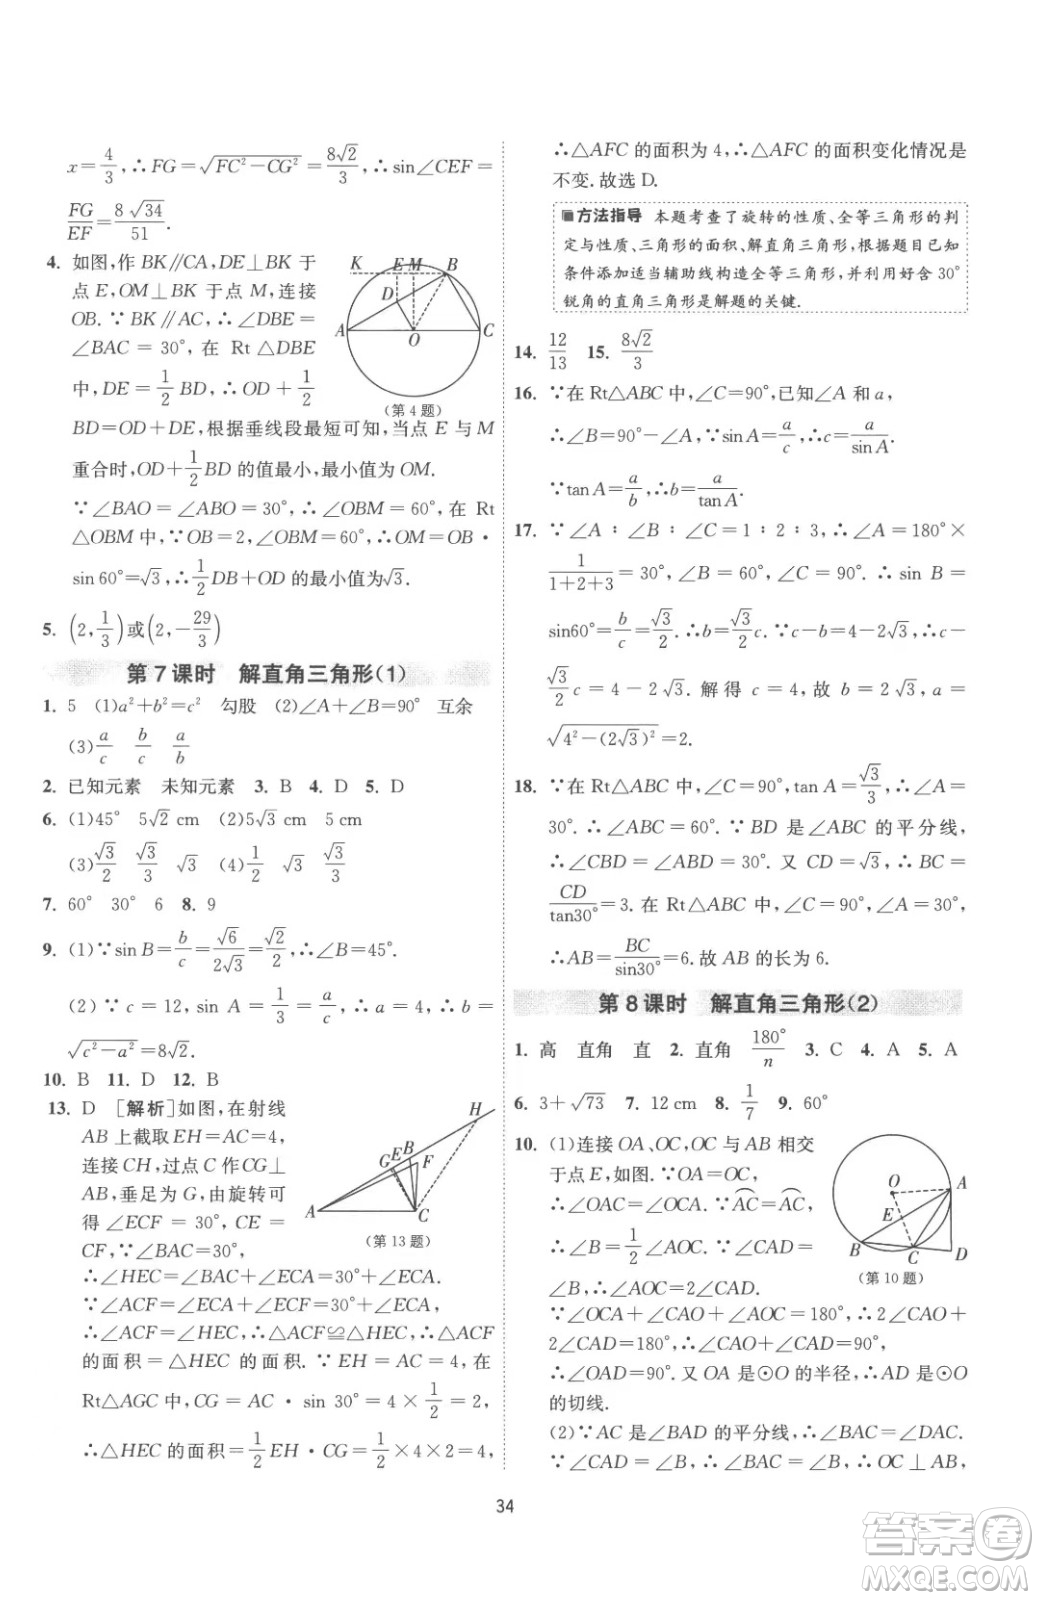 x=4/3,∴FG=√(FC²-CG²)=8√2/3,∴sin∠CEF=
FG/EF=8√34/51.
4. 如图,作 BK∥CA,DE⊥BK 于
点 E,OM⊥BK 于点 M,连接
OB.∵BK∥AC,∴∠DBE=
∠BAC=30°,在 Rt△DBE
中,DE=1/2BD,∴OD+1/2
BD=OD+DE,根据垂线段最短可知,当点 E 与 M
重合时,OD+1/2BD 的值最小,最小值为 OM.
∵∠BAO=∠ABO=30°,∴∠OBM=60°,在 Rt
△OBM 中,∵OB=2,∠OBM=60°,∴OM=OB·
sin60°=√3,∴1/2DB+OD 的最小值为√3.
K E M B
D
A O C
(第 4 题)
5. (2,1/3)或(2,-29/3)
第 7 课时 解直角三角形(1)
1. 5 (1)a²+b²=c² 勾股 (2)∠A+∠B=90° 互余
(3)a/c b/c a/b
2. 已知元素 未知元素 3. B 4. D 5. D
6. (1)45° 5√2 cm (2)5√3 cm 5 cm
(3)√3/2 √3/3 √3 (4)1/2 √3 √3/2
7. 60° 30° 6 8. 9
9. (1)∵sin B=b/c=√6/2√3=√2/2,∴∠B=45°.
(2)∵c=12,sin A=1/3=a/c,∴a=4,∴b=
√(c²-a²)=8√2.
10. B 11. D 12. B
13. D [解析]如图,在射线
AB 上截取EH=AC=4,
连接CH,过点 C 作CG⊥
AB,垂足为 G,由旋转可
得∠ECF=30°,CE=
CF,∵∠BAC=30°,
H
G E B F
A C
(第 13 题)
∴∠HEC=∠BAC+∠ECA=30°+∠ECA.
∵∠ACF=∠ECA+∠ECF=30°+∠ECA,
∴∠ACF=∠HEC,∴△ACF≌△HEC,∴△ACF
的面积=△HEC 的面积.∵EH=AC=4,在
Rt△AGC 中,CG=AC·sin 30°=4×1/2=2,
∴△HEC 的面积=1/2EH·CG=1/2×4×2=4,
∴△AFC 的面积为 4,∴△AFC 的面积变化情况是
不变.故选 D.
方法指导 本题考查了旋转的性质、全等三角形的判
定与性质、三角形的面积、解直角三角形,根据题目已知
条件添加适当辅助线构造全等三角形,并利用好含 30°
锐角的直角三角形是解题的关键.
14. 12/13 15. 8√2/3
16. ∵在 Rt△ABC 中,∠C=90°,已知∠A 和 a,
∴∠B=90°-∠A,∵sin A=a/c,∴c=a/sin A.
∵tan A=a/b,∴b=a/tan A.
17. ∵∠A∶∠B∶∠C=1∶2∶3,∴∠A=180°×
1/(1+2+3)=30°,∠B=60°,∠C=90°.∴sin B=
sin60°=b/c=√3/2.∴b=√3/2c.∵b=4-2√3,∴c-
√3/2c=4-2√3.解得 c=4,故 b=2√3,a=
√(4²-(2√3)²)=2.
18. ∵在 Rt△ABC 中,∠C=90°,tan A=√3/3,∴∠A=
30°.∴∠ABC=60°.∵BD 是∠ABC 的平分线,
∴∠CBD=∠ABD=30°.又 CD=√3,∴BC=
CD/tan30°=3.在 Rt△ABC 中,∠C=90°,∠A=30°,
∴AB=BC/sin30°=6.故 AB 的长为 6.
第 8 课时 解直角三角形(2)
1. 高 直角 直 2. 直角 180°/n 3. C 4. A 5. A
6. 3+√73 7. 12 cm 8. 1/7 9. 60°
10. (1)连接 OA、OC,OC 与 AB 相交
于点 E,如图.∵OA=OC,
∴∠OAC=∠OCA.∵AC⌒=AC⌒,
∴∠B=1/2∠AOC.∵∠CAD=
∠B,∴∠AOC=2∠CAD.
O A
E
B C D
(第 10 题)
∵∠OCA+∠CAO+∠AOC=180°,∴2∠CAO+
2∠CAD=180°,∴∠CAO+∠CAD=90°,
∴∠OAD=90°.又 OA 是⊙O 的半径,∴AD 是⊙O
的切线.
(2)∵AC 是∠BAD 的平分线,∴∠BAC=∠CAD.
∵∠B=∠CAD,∴∠BAC=∠B,∴OC⊥AB,
34
答案卷
MXQE.COM